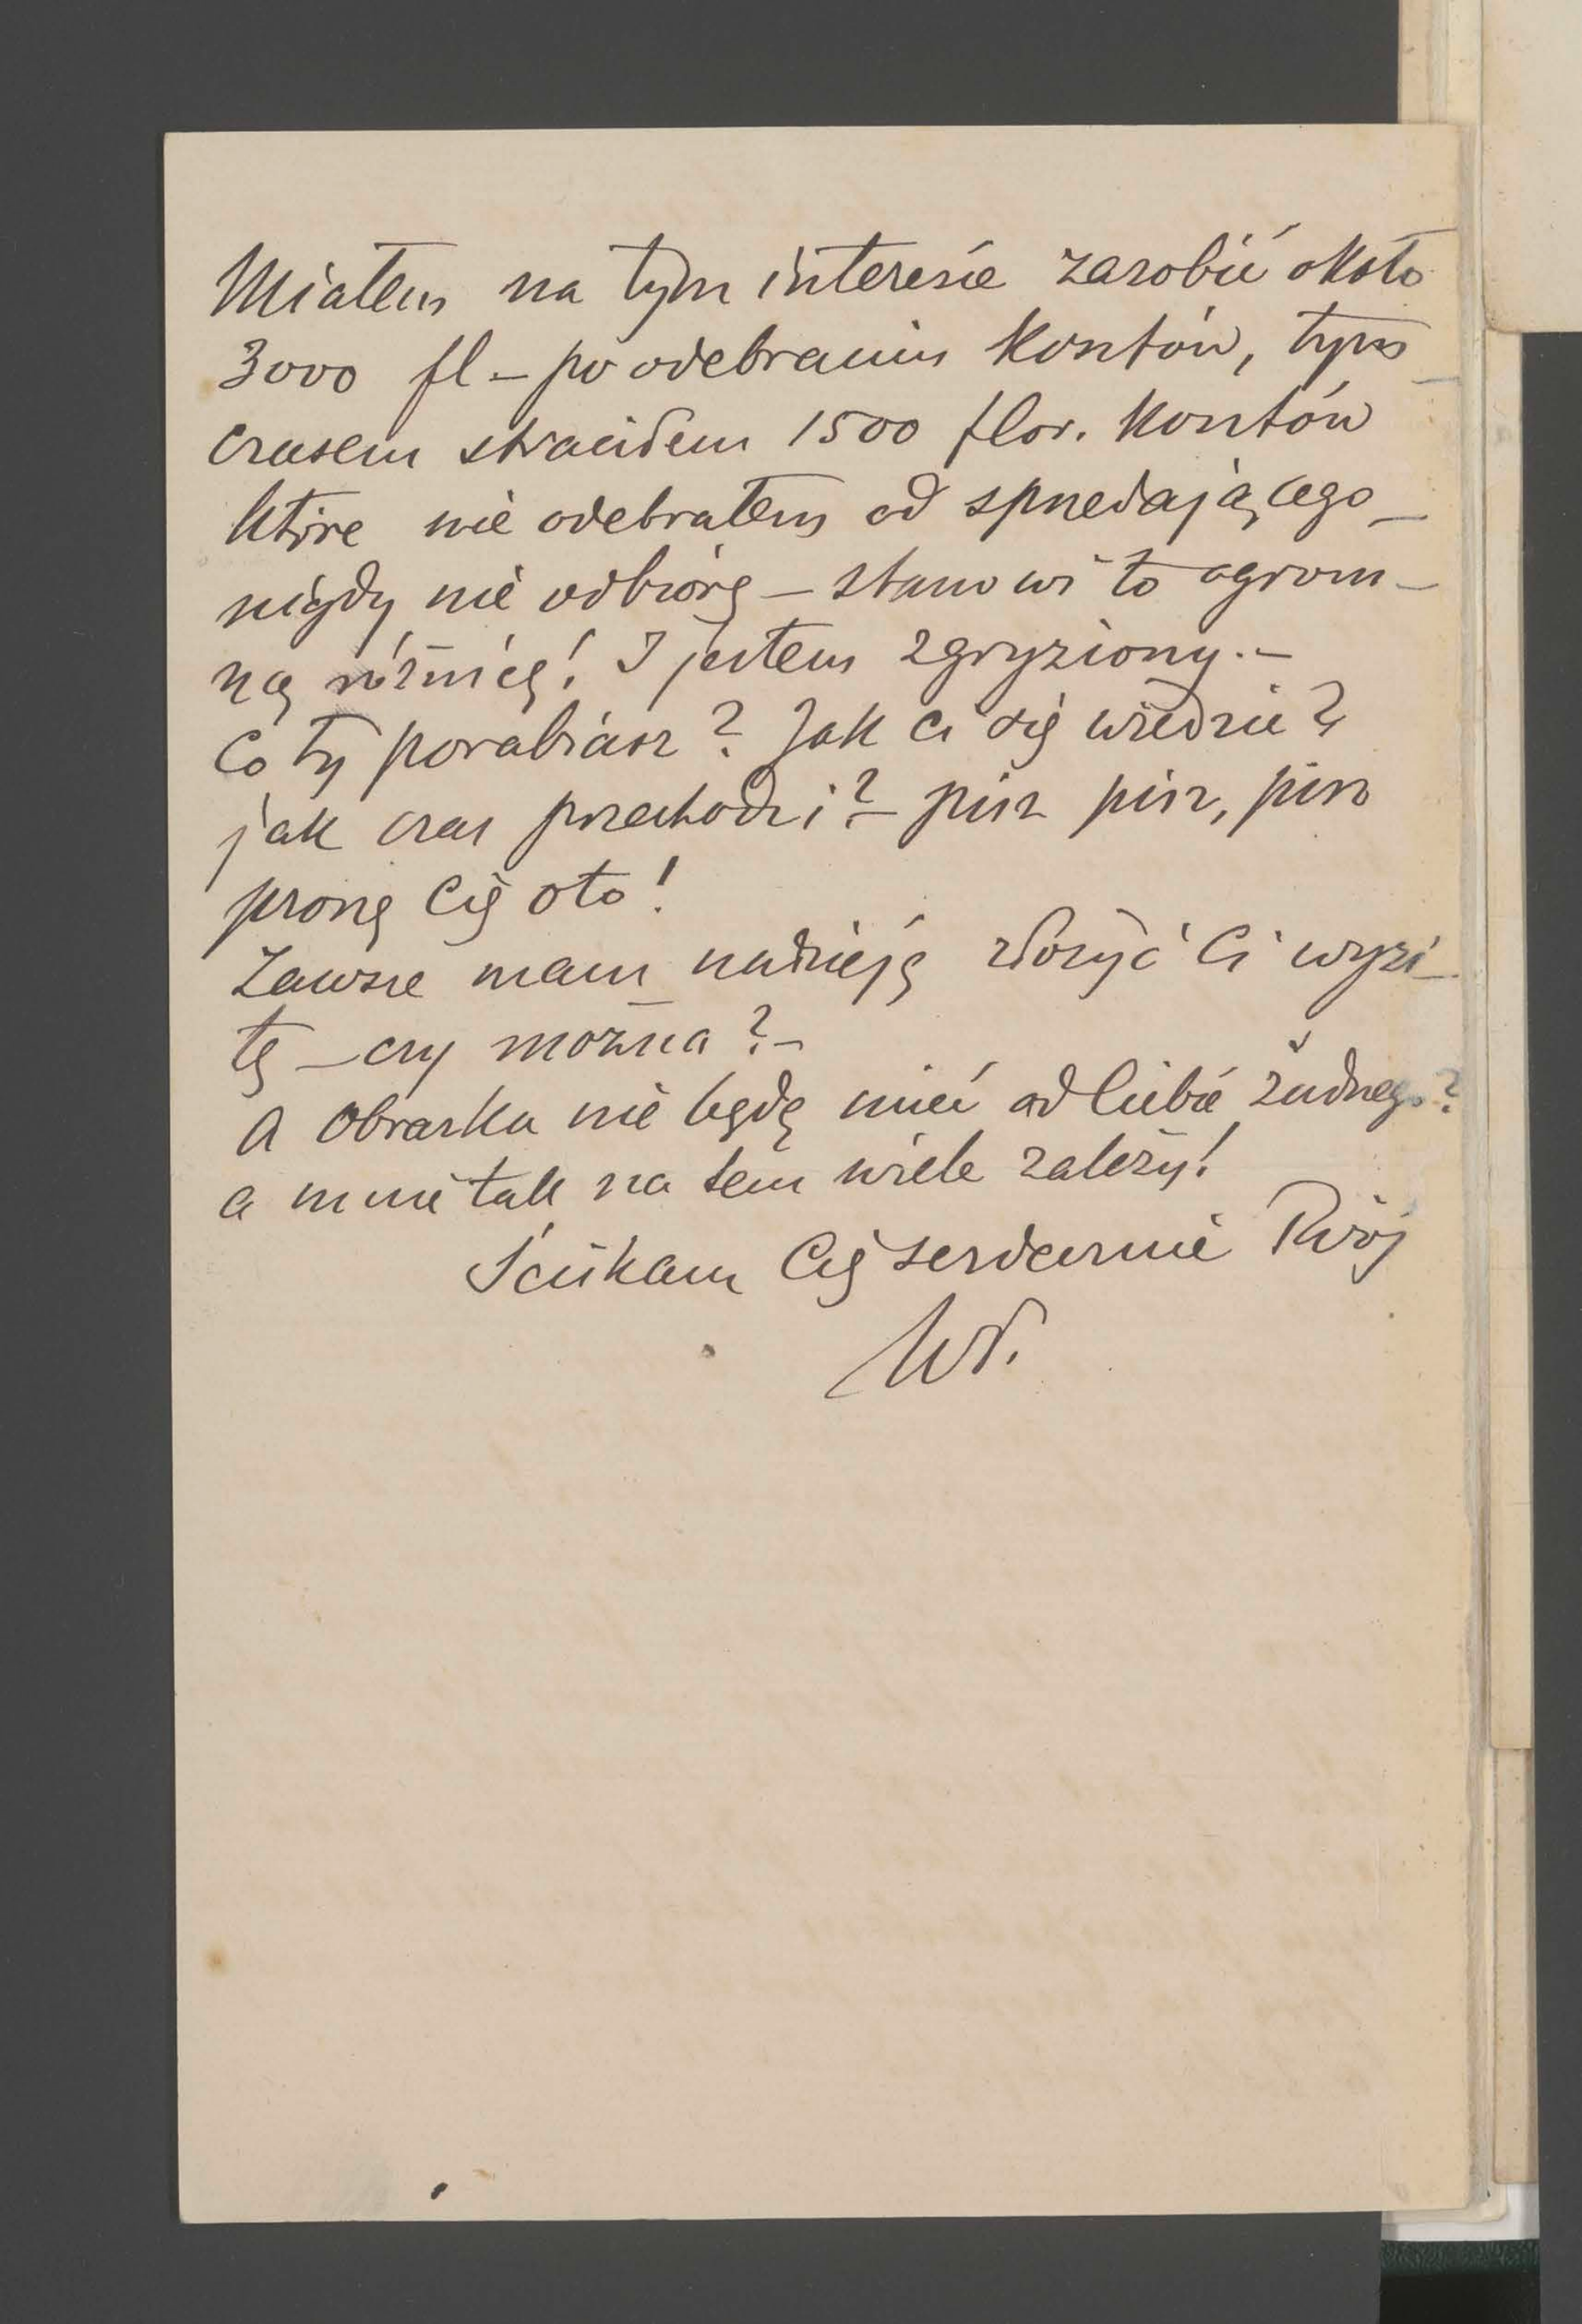 Miałem na tym interesie zarobić około
3000 fl – po odebraniu kosztów, tym
czasem straciłem 1500 flor. kosztów
które nie odebrałem od sprzedającego –
nigdy nie odbiorę – stanowi to ogrom–
ną różnicę! I jestem zgryziony. –
Co ty porabiasz? Jak ci się wiedzie?
jak czas przechodzi? – pisz pisz, pisz
proszę Cię oto!
Zawsze mam nadzieję złożyć Ci wyzi–
tę – czy można? –
A Obrazka nie będę mieć od Ciebie żadnego?
a mnie tak na tem wiele zależy!
Ściskam Cię serdecznie Twój
Wł.